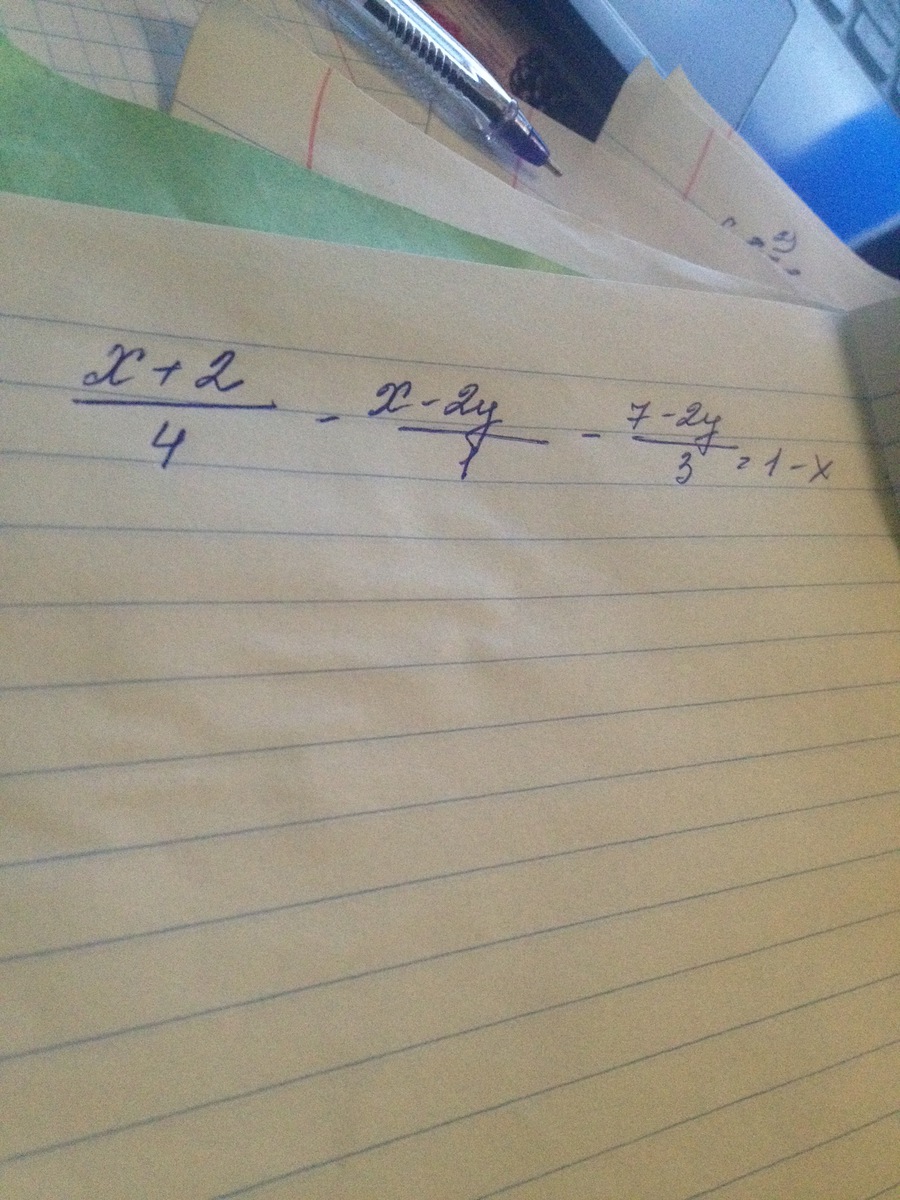 x + 2 / 4 - x - 2y / 1 - 7 - 2y / 3 = 1 - x